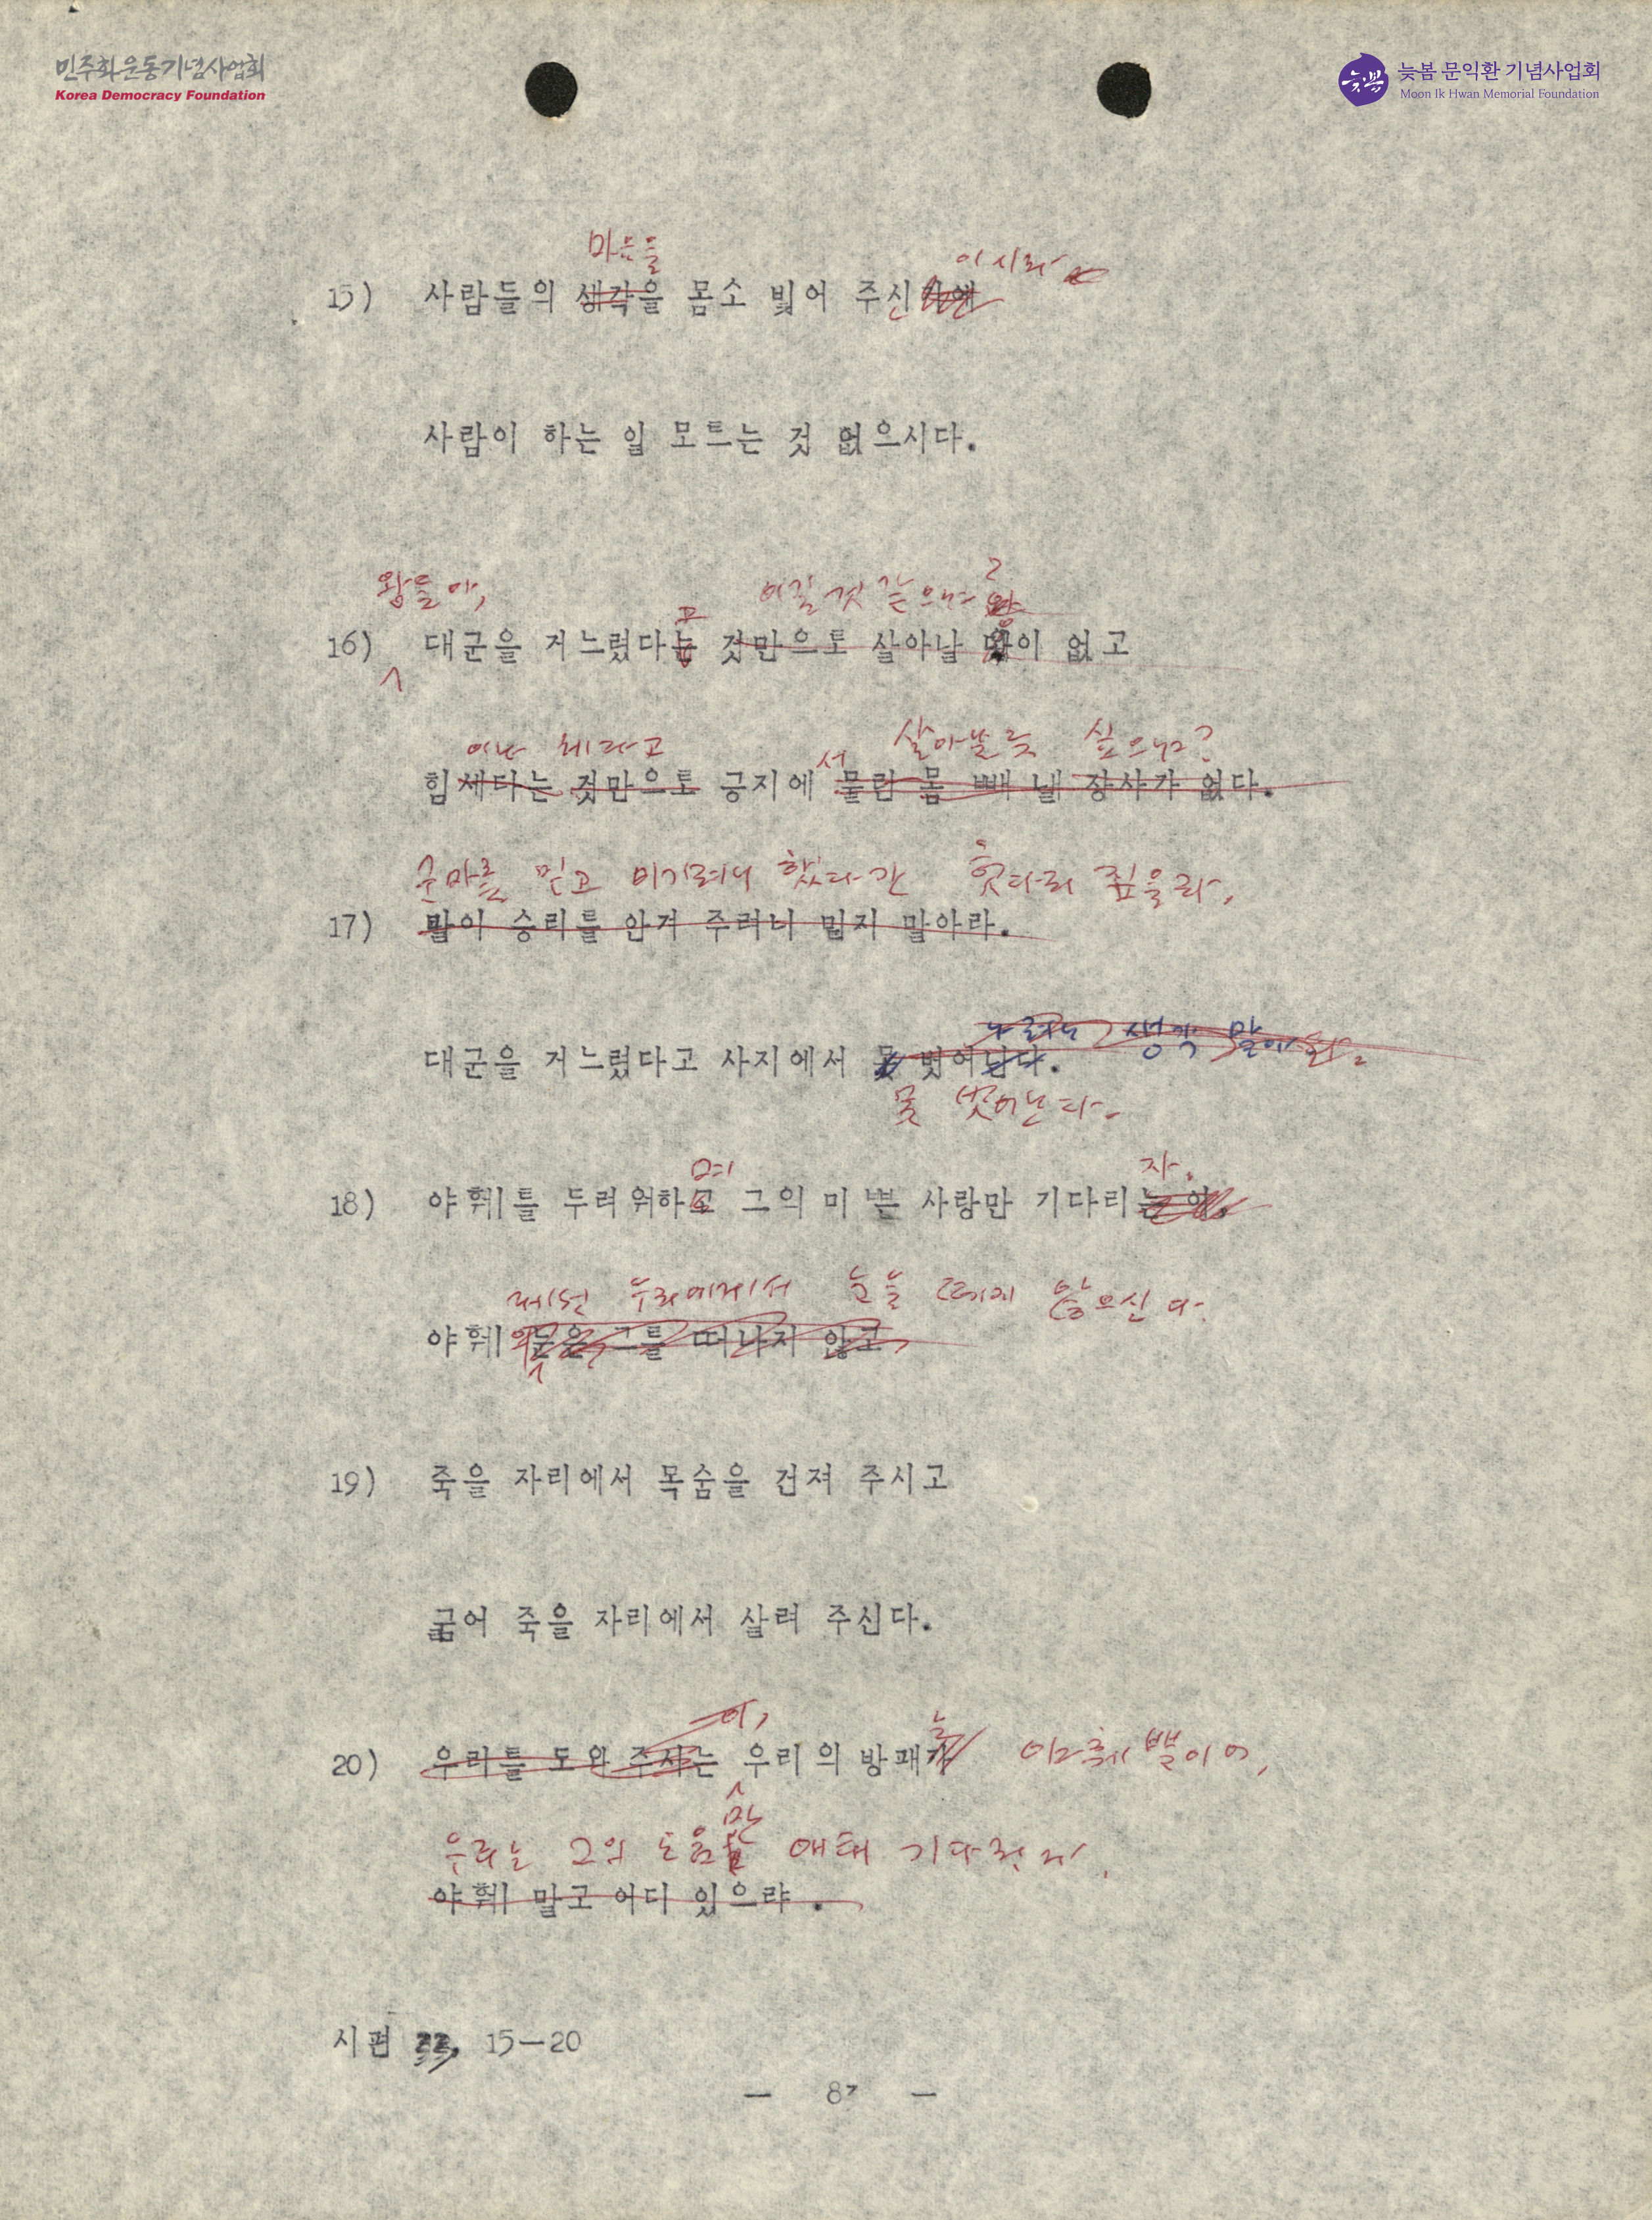 민주화운동기념사업회
Korea Democracy Foundation
늦봄
늦봄 문익환 기념사업회
Moon Ik Hwan Memorial Foundation
마음들 이시라
15) 사람들의 생각을 몸소 빚어 주신
사람이 하는 일 모르는 것 없으시다.
왕들아, 고 이길 것 같으냐
16) 대군을 거느렸다는 것만으로 살아날 왕이 없고
세다고 서 살아날 듯 싶으냐?
힘세다는 것만으로 궁지에 물린 몸 빼 낼 장사가 없다.
군마를 믿고 이기려니 했다가 헛다리 짚을라,
17) 말이 승리를 안겨 주려니 믿지 말아라.
생각 말아라.
대군을 거느렸다고 사지에서 못 벗어난다.
못 벗어난다.
며 자,
18) 야훼를 두려워하고 그의 미쁜 사랑만 기다리는 이,
우리에게서 눈을 떼지 않으신다.
야훼의 눈은 그를 떠나지 않고,
19) 죽을 자리에서 목숨을 건져 주시고
굶어 죽을 자리에서 살려 주신다.
이, 는
20) 우리를 도와 주시는 우리의 방패가 야훼뿐이어,
만
우리는 그의 도움 애태 기다리
야훼 말고 어디 있으랴.
시편 33, 15—20
— 87 —